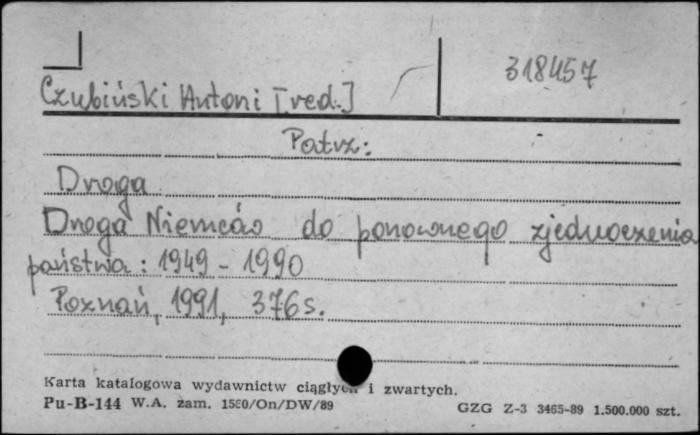 318457
Czubiński Antoni [red.]
Patrz:
Droga
Droga Niemców do ponownego zjednoczenia
państwa : 1949 - 1990
Poznań, 1991, 376 s.
Karta katalogowa wydawnictw ciągłych i zwartych.
Pu-B-144 W.A. zam. 1560/On/DW/89 GZG Z-3 3465-89 1.500.000 szt.